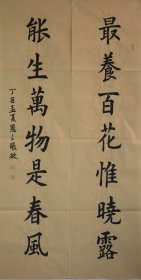 最養百花惟曉露
能生萬物是春風
丁酉孟夏
張敏